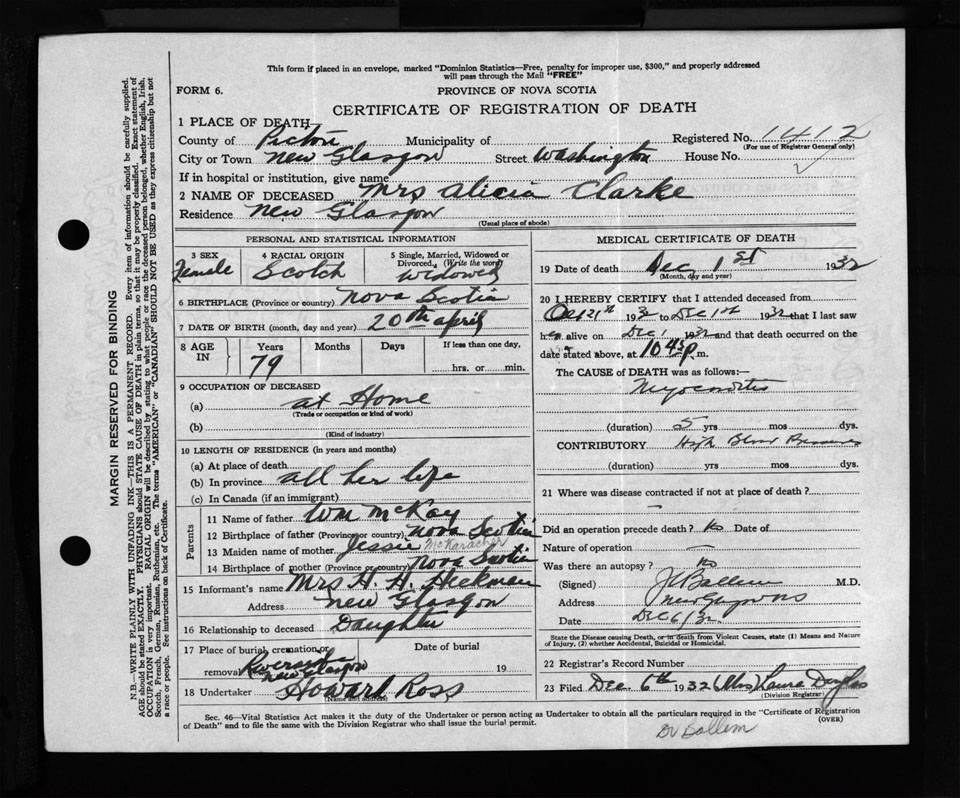 This form if placed in an envelope, marked "Dominion Statistics—Free, penalty for improper use, $300," and properly addressed
will pass through the Mail "FREE"
FORM 6.
PROVINCE OF NOVA SCOTIA
CERTIFICATE OF REGISTRATION OF DEATH
1 PLACE OF DEATH—
County of Pictou Municipality of Registered No. 1412
(For use of Registrar General only)
City or Town New Glasgow Street Washington House No.
If in hospital or institution, give name
2 NAME OF DECEASED Mrs Alicia Clarke
Residence New Glasgow
(Usual place of abode)
MARGIN RESERVED FOR BINDING
N.B.—WRITE PLAINLY WITH UNFADING INK—THIS IS A PERMANENT RECORD. Every item of information should be carefully supplied.
AGE should be stated EXACTLY. PHYSICIANS should STATE CAUSE OF DEATH in plain terms, so that it may be properly classified. Exact statement of
OCCUPATION is very important. RACIAL ORIGIN will be described by stating to what people or race the deceased person belonged, whether English, Irish,
Scotch, French, German, Russian, Ruthenian, etc. The terms "AMERICAN" or "CANADIAN" SHOULD NOT BE USED as they express citizenship but not
a race or people. See instructions on back of Certificate.
PERSONAL AND STATISTICAL INFORMATION
3 SEX
Female
4 RACIAL ORIGIN
Scotch
5 Single, Married, Widowed or
Divorced, (Write the word)
Widowed
6 BIRTHPLACE (Province or country) Nova Scotia
7 DATE OF BIRTH (month, day and year) 20th April
8 AGE
IN
Years
79
Months
Days
If less than one day,
hrs. or min.
9 OCCUPATION OF DECEASED
(a) at Home
(Trade or occupation or kind of work)
(b)
(Kind of industry)
10 LENGTH OF RESIDENCE (in years and months)
(a) At place of death
(b) In province all her life
(c) In Canada (if an immigrant)
Parents
11 Name of father Wm McKay
12 Birthplace of father (Province or country) Nova Scotia
13 Maiden name of mother Jessie McKaracher
14 Birthplace of mother (Province or country) Nova Scotia
15 Informant's name Mrs H. H. Heckman
Address New Glasgow
16 Relationship to deceased Daughter
17 Place of burial, cremation, or Date of burial
removal Riverside New Glasgow 19
18 Undertaker Howard Ross
(Name and address)
MEDICAL CERTIFICATE OF DEATH
19 Date of death Dec 1st 1932
(Month, day and year)
20 I HEREBY CERTIFY that I attended deceased from
Oct 21st 1932 to Dec 1st 1932 that I last saw
her alive on Dec 1 1932 and that death occurred on the
date stated above, at 10.45 p. m.
The CAUSE of DEATH was as follows:—
Myocarditis
(duration) 5 yrs mos dys.
CONTRIBUTORY High Blood Pressure
(duration) yrs mos dys.
21 Where was disease contracted if not at place of death?
—
Did an operation precede death? No Date of
Nature of operation —
Was there an autopsy? No
(Signed) J Ballem M.D.
Address New Glasgow NS
Date Dec 6/32
State the Disease causing Death, or in death from Violent Causes, state (1) Means and Nature
of Injury, (2) whether Accidental, Suicidal or Homicidal.
22 Registrar's Record Number
23 Filed Dec 6th 1932 (Mrs) Laura Douglas
(Division Registrar)
Sec. 46—Vital Statistics Act makes it the duty of the Undertaker or person acting as Undertaker to obtain all the particulars required in the "Certificate of Registration
of Death" and to file the same with the Division Registrar who shall issue the burial permit.
(OVER)
Dr Ballem